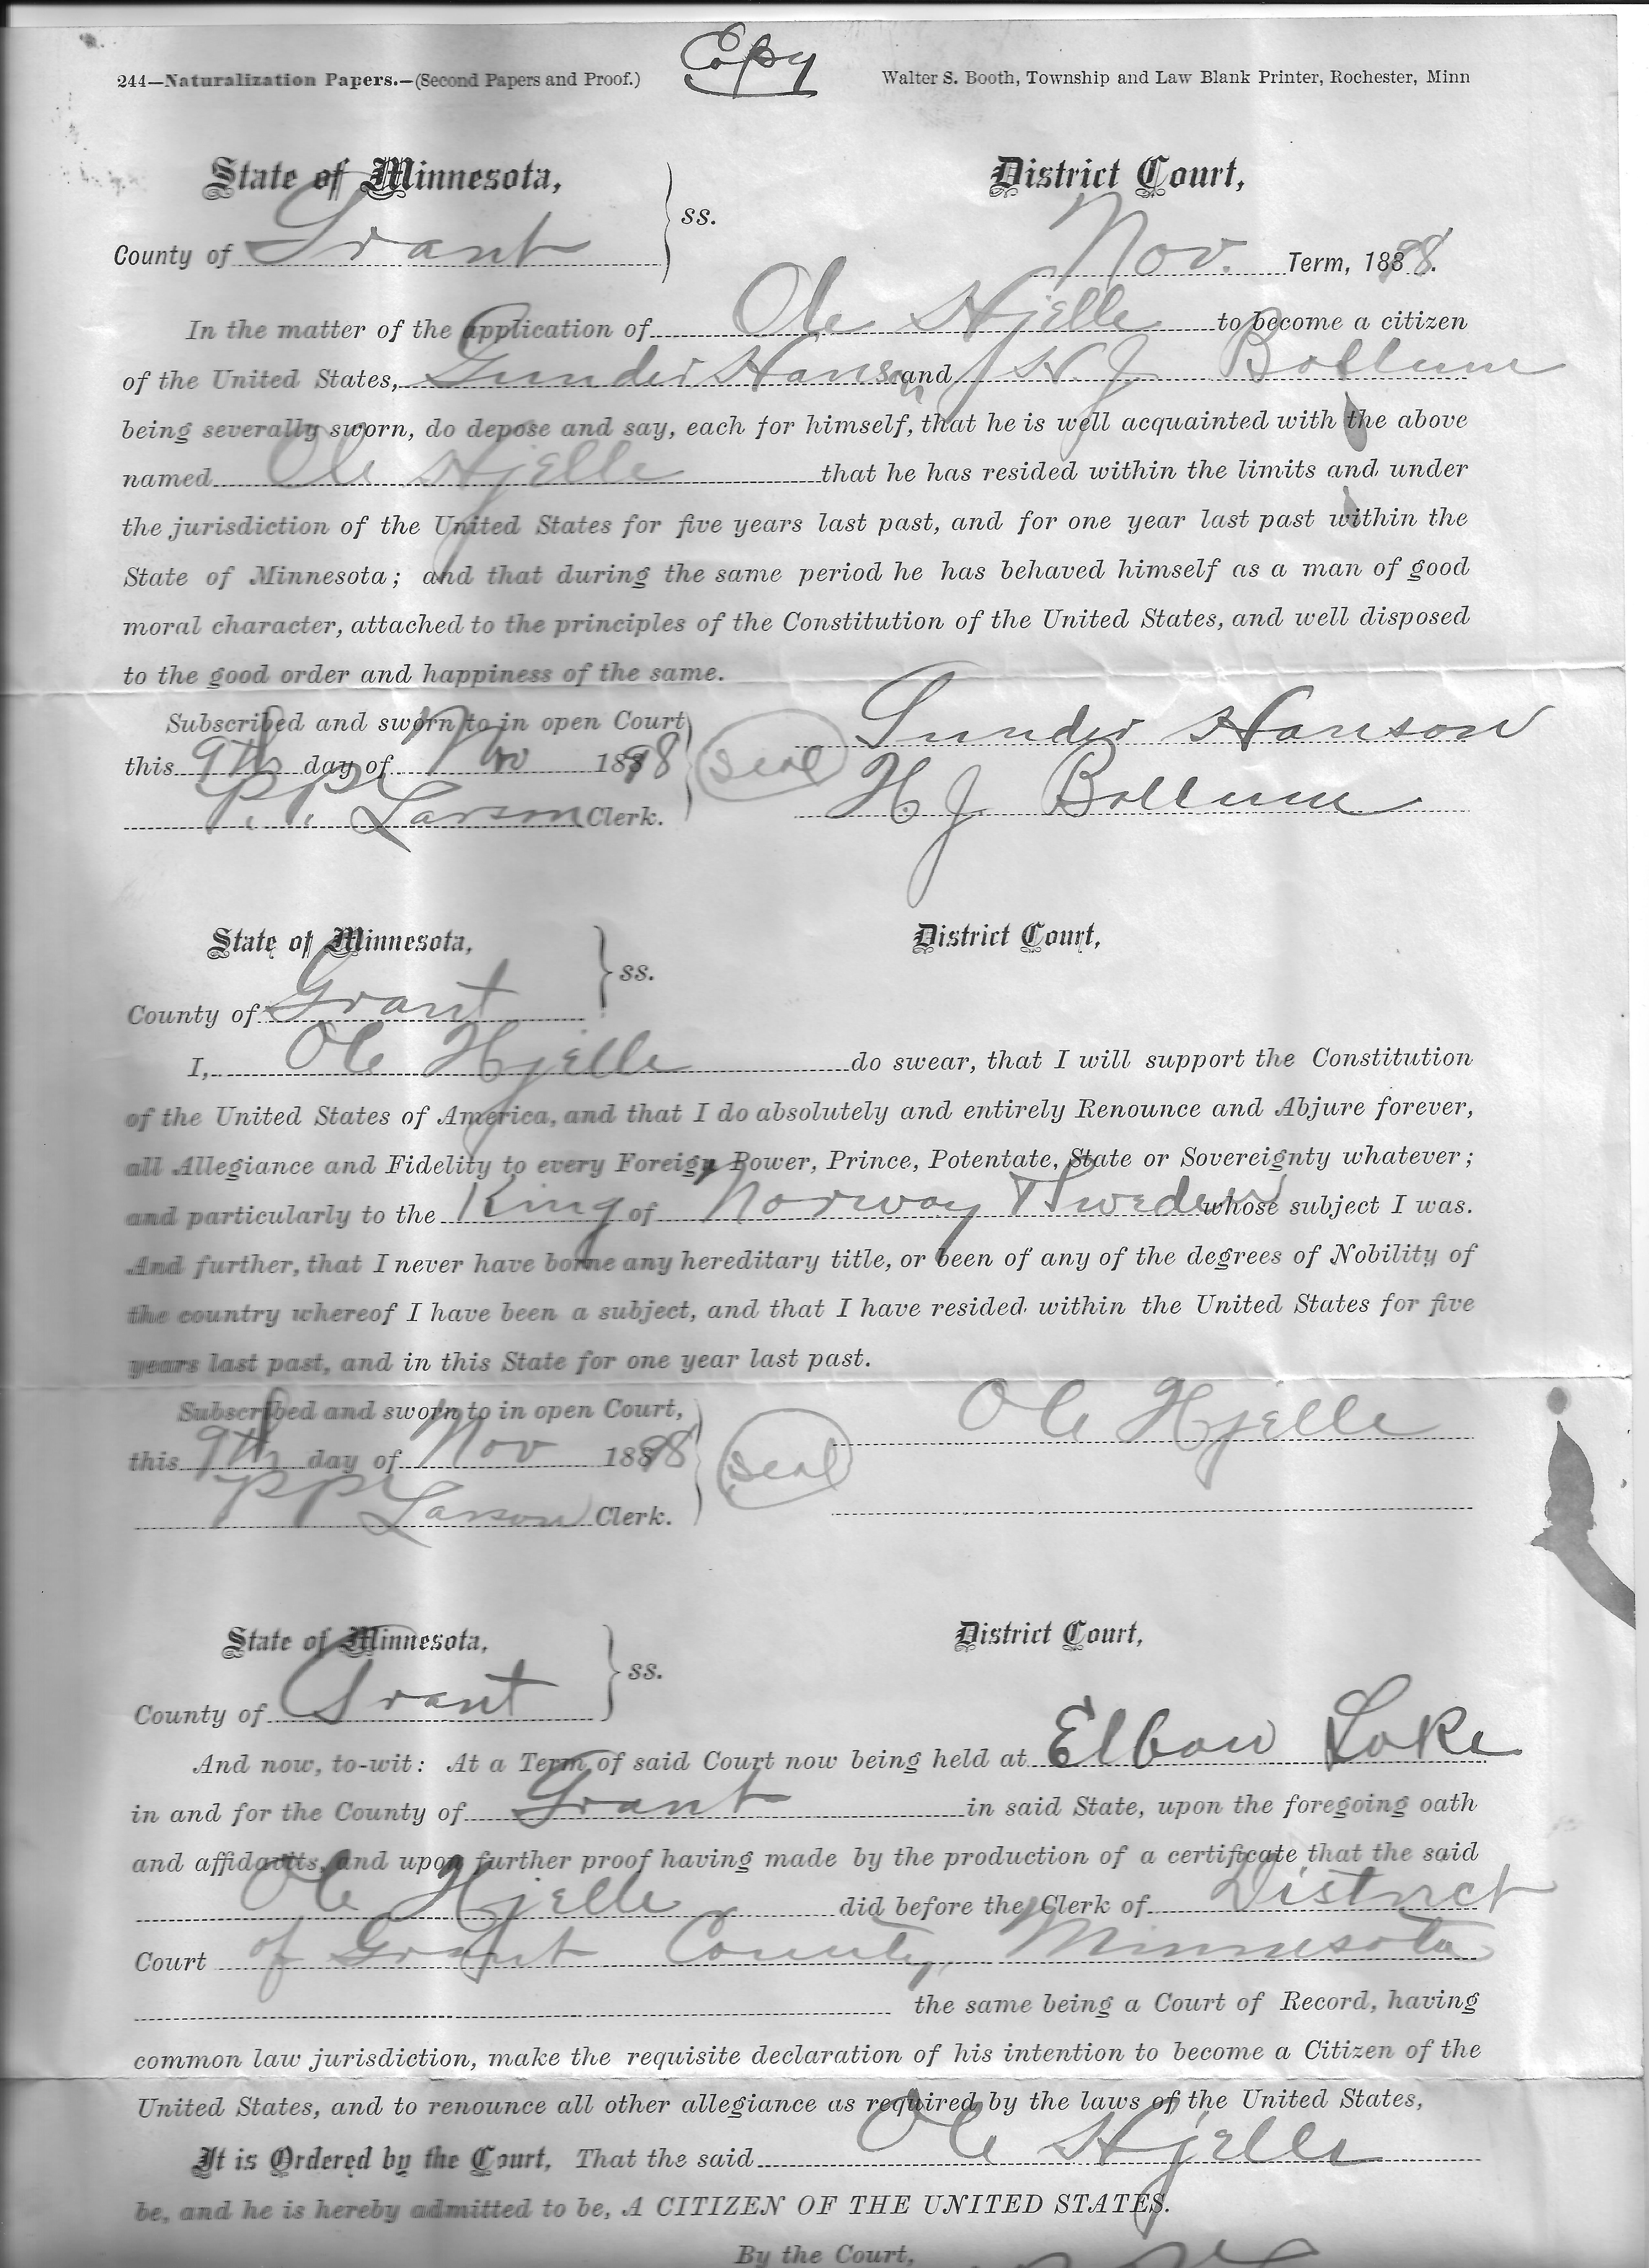 244—Naturalization Papers.—(Second Papers and Proof.) Copy Walter S. Booth, Township and Law Blank Printer, Rochester, Minn
State of Minnesota, ss. District Court,
County of Grant Nov. Term, 1898.
In the matter of the application of Ole Hjelle to become a citizen
of the United States, Gunder Hanson and H. J. Bollum
being severally sworn, do depose and say, each for himself, that he is well acquainted with the above
named Ole Hjelle that he has resided within the limits and under
the jurisdiction of the United States for five years last past, and for one year last past within the
State of Minnesota; and that during the same period he has behaved himself as a man of good
moral character, attached to the principles of the Constitution of the United States, and well disposed
to the good order and happiness of the same.
Subscribed and sworn to in open Court
this 9th day of Nov 1898 Seal Gunder Hanson
P. P. Larson Clerk. H J Bollum
State of Minnesota, ss. District Court,
County of Grant
I, Ole Hjelle do swear, that I will support the Constitution
of the United States of America, and that I do absolutely and entirely Renounce and Abjure forever,
all Allegiance and Fidelity to every Foreign Power, Prince, Potentate, State or Sovereignty whatever;
and particularly to the King of Norway & Sweden whose subject I was.
And further, that I never have borne any hereditary title, or been of any of the degrees of Nobility of
the country whereof I have been a subject, and that I have resided within the United States for five
years last past, and in this State for one year last past.
Subscribed and sworn to in open Court,
this 9th day of Nov 1898 Seal Ole Hjelle
P P Larson Clerk.
State of Minnesota, ss. District Court,
County of Grant
And now, to-wit: At a Term of said Court now being held at Elbow Lake
in and for the County of Grant in said State, upon the foregoing oath
and affidavits, and upon further proof having made by the production of a certificate that the said
Ole Hjelle did before the Clerk of District
Court of Grant County, Minnesota
the same being a Court of Record, having
common law jurisdiction, make the requisite declaration of his intention to become a Citizen of the
United States, and to renounce all other allegiance as required by the laws of the United States,
It is Ordered by the Court, That the said Ole Hjelle
be, and he is hereby admitted to be, A CITIZEN OF THE UNITED STATES.
By the Court,